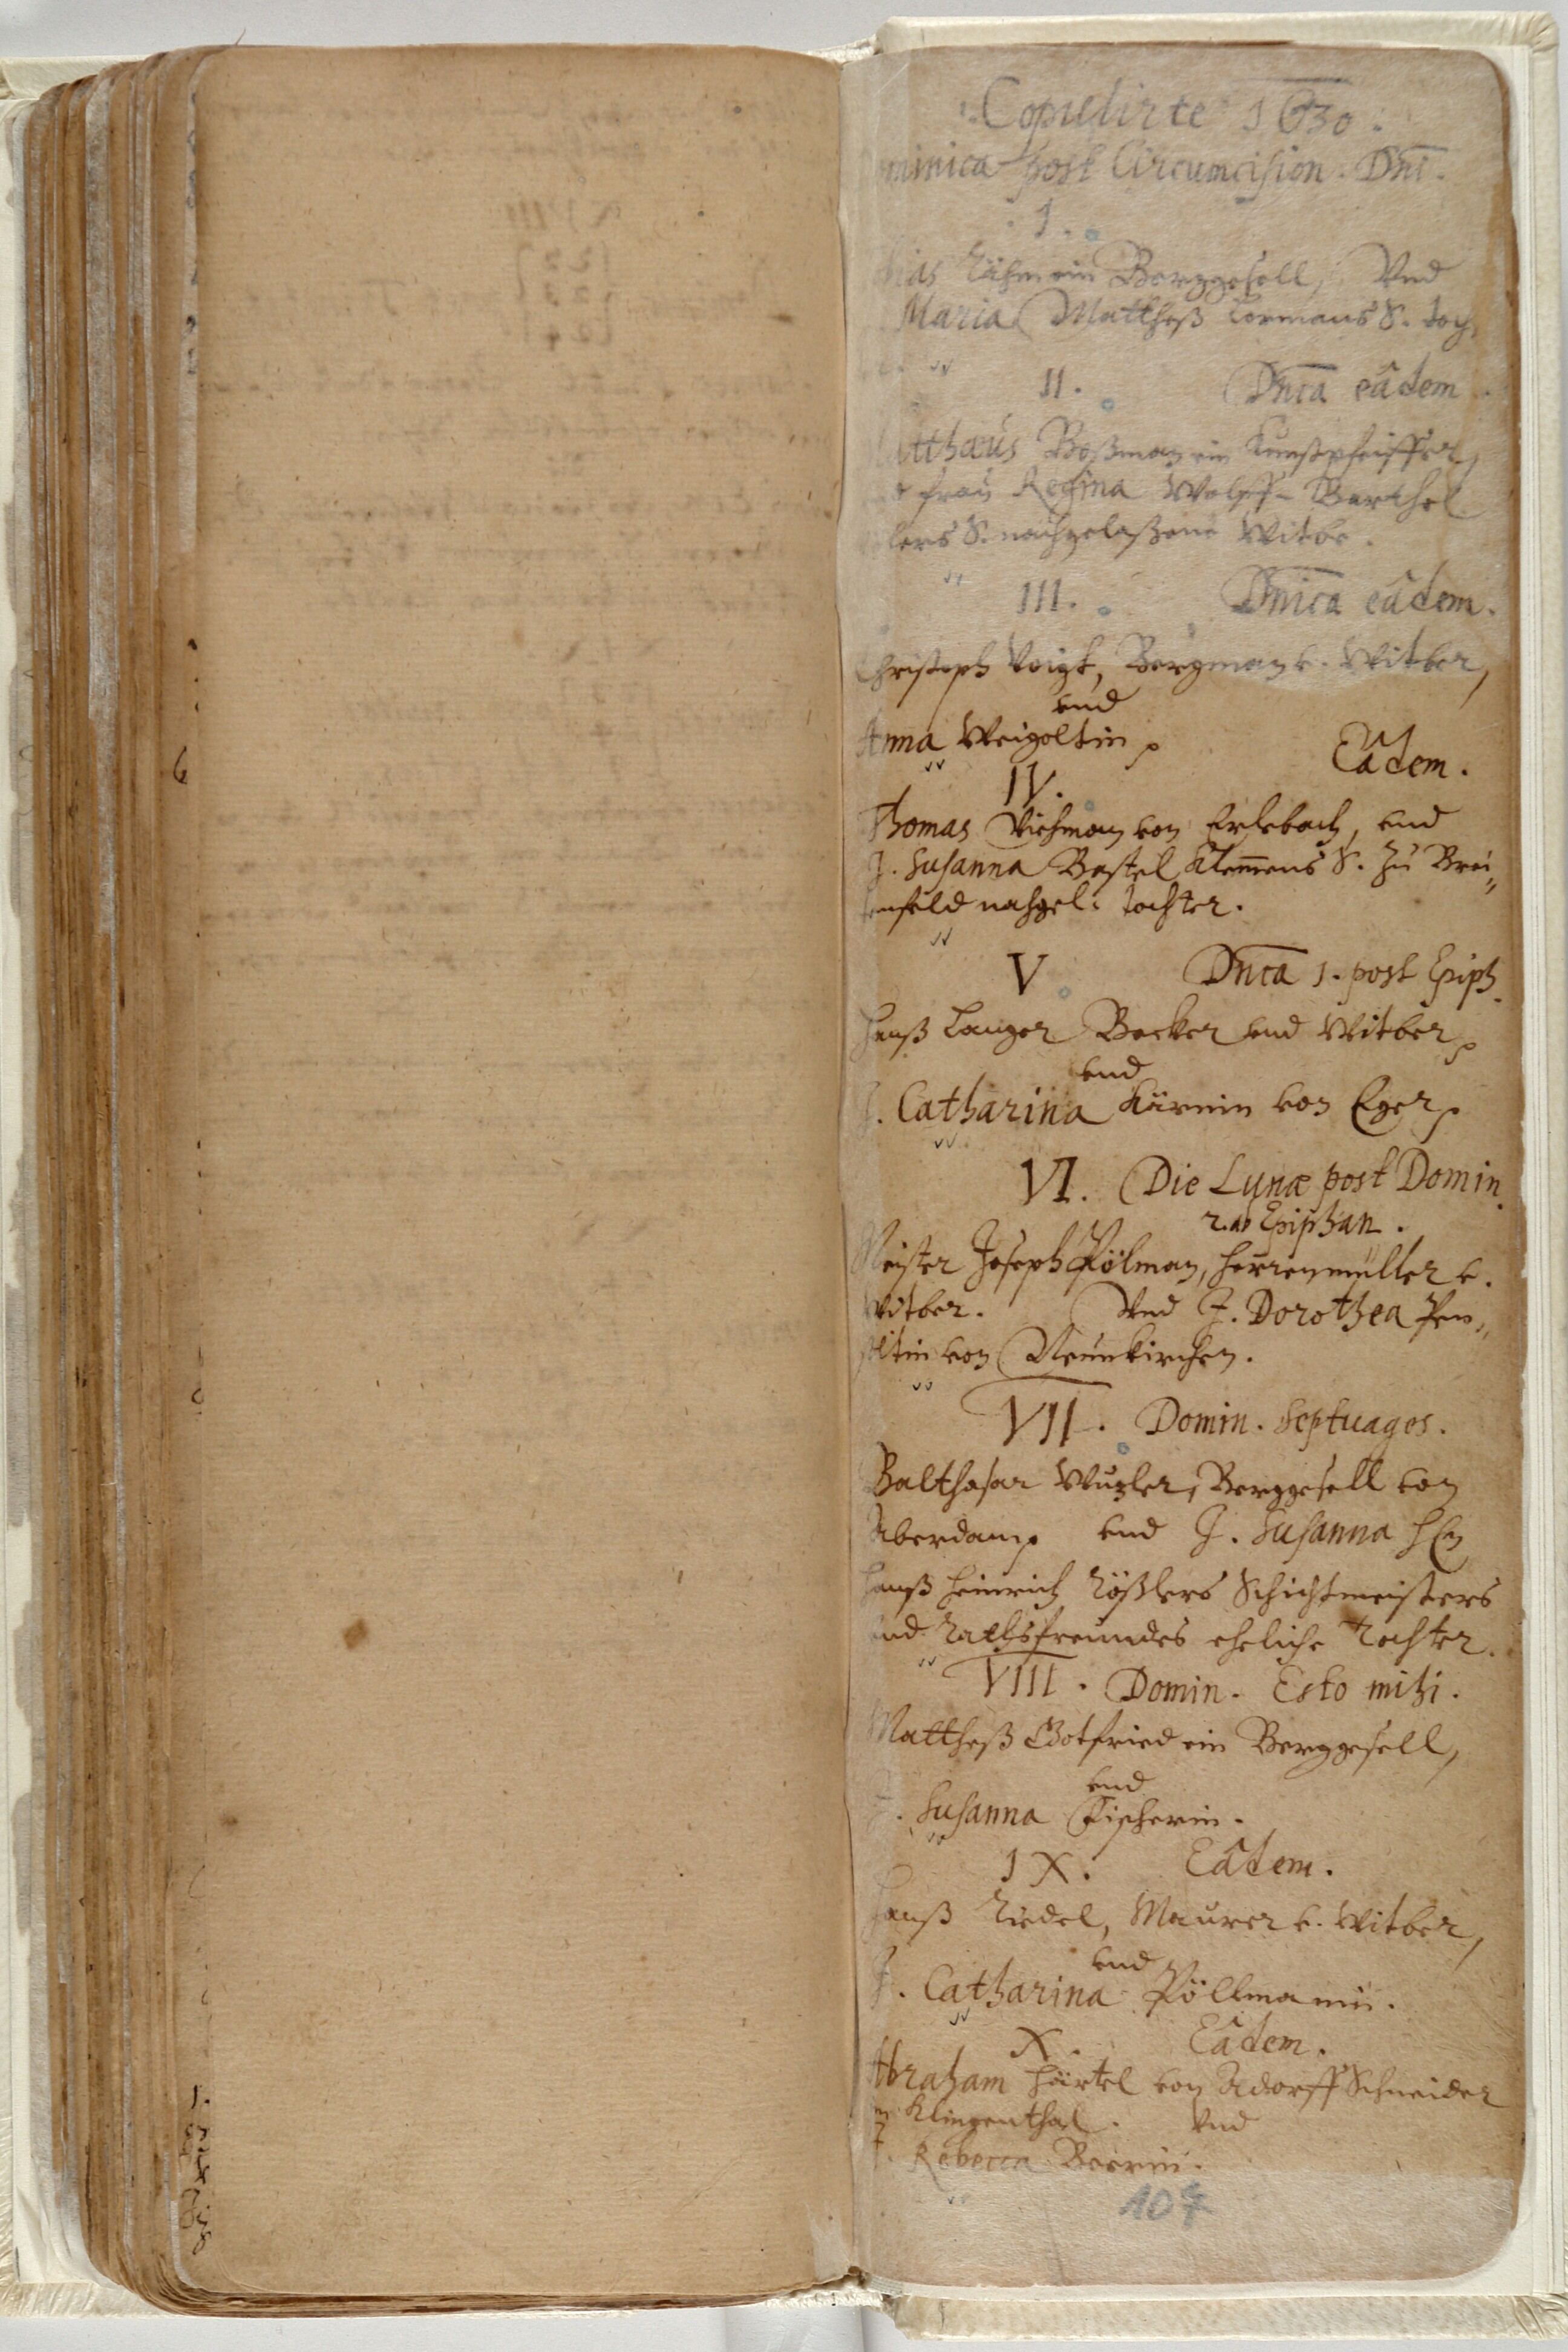 Copulirte 1630.
minica post Circumcision. Dni.
1.
hias ein Berggesell, Vnd
Maria Mattheß Cormans S. toch
II. Dnca eâdem
atthaüs Boßman ein Kunstpfeiffer,
fraü Regina Wolff Barthel
lers S. nachgelaßene Witbe.
III. Dnica eâdem.
Christoph Voigt, Bergman v. Witber,
vnd
Anna Weigoltin
Eâdem.
IV.
Thomas Viehman von Erlebach, vnd
J. Susanna Bastel Klem̄ens S. zu Brei„
tenfeld nachgel. tochter.
V Dnca 1. post Epiph.
Hanß Langer Becker vnd Witber
vnd
J. Catharina Kärnin von Eger
VI. Die Lunæ post Domin.
2. ab Epiphan.
Meister Joseph Pölman, Herrenmüller v.
Witber. Vnd J. Dorothea Pen„
oltin von Neunkirchen.
VII. Domin. Septuages.
Balthasar Wuzler, Berggesell von
Aberdam vnd J. Susanna H En
Hanß Heinrich Rößlers Schichtmeisters
vnd Rathsfreundes eheliche tochter.
VIII. Domin. Esto mihi.
Mattheß Gotfried ein Berggesell,
vnd
J. Susanna Fischerin.
IX. Eâdem.
Hanß Riedel, Maurer v. Witber,
vnd
J. Catharina Pöllmanin.
X. Eâdem.
Abraham Härtel von Adorff Schneider
in Klingenthal. Vnd
J. Rebecca Beerin.
107